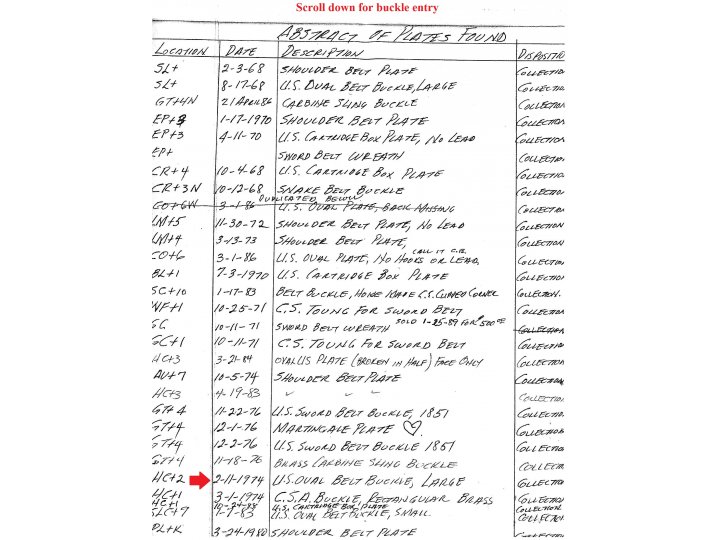 Scroll down for buckle entry
ABSTRACT OF PLATES FOUND
LOCATION DATE DESCRIPTION DISPOSITIO
SL+ 2-3-68 SHOULDER BELT PLATE COLLECTIO
SL+ 8-17-68 U.S. DUAL BELT BUCKLE, LARGE COLLECTIO
GT+4N 21 APRIL 86 CARBINE SLING BUCKLE COLLECTION
EP+3 1-17-1970 SHOULDER BELT PLATE COLLECTION
EP+3 4-11-70 U.S. CARTRIDGE BOX PLATE, NO LEAD COLLECTION
EP+ SWORD BELT WREATH COLLECTION
CR+4 10-4-68 U.S. CARTRIDGE BOX PLATE COLLECTION
CR+3N 10-12-68 SNAKE BELT BUCKLE COLLECTION
DUPLICATED BELOW
CO+6W 3-1-86 U.S. OVAL PLATE, BACK MISSING COLLECTION
LM+5 11-30-72 SHOULDER BELT PLATE, NO LEAD COLLECTION
LM+4 3-13-73 SHOULDER BELT PLATE, COLLECTION
CO+6 3-1-86 U.S. OVAL PLATE, NO HOOKS OR LEAD, CALL IT COLLECTION
BL+1 7-3-1970 U.S. CARTRIDGE BOX PLATE COLLECTION
SC+10 1-17-83 BELT BUCKLE, HOME MADE C.S. CLIPPED CORNER COLLECTION.
WF+1 10-25-71 C.S. TOUNG FOR SWORD BELT COLLECTION
SC 10-11-71 SWORD BELT WREATH SOLD 1-25-89 FOR $500 COLLECTION
GC+1 10-11-71 C.S. TOUNG FOR SWORD BELT COLLECTION
HC+3 3-21-84 OVAL US PLATE (BROKEN IN HALF) FACE ONLY COLLECTION
AU+7 10-5-74 SHOULDER BELT PLATE COLLECTION
HC+3 4-19-83 COLLECTION
GT+4 11-22-76 U.S. SWORD BELT BUCKLE, 1851 COLLECTIO
GT+4 12-1-76 MARTINGALE PLATE ♡. COLLECTION
GT+4 12-2-76 U.S. SWORD BELT BUCKLE 1851 COLLECTION
GT+4 11-18-76 BRASS CARBINE SLING BUCKLE COLLECTI
HC+2 2-11-1974 U.S. OVAL BELT BUCKLE, LARGE COLLECTION
HC+1 3-1-1974 C.S.A. BUCKLE, RECTANGULAR BRASS COLLECTION
HC+1 U.S. CARTRIDGE BOX PLATE COLLECTION
SC+7 1-1-83 U.S. OVAL BELT BUCKLE, SMALL COLLECTION
PL+K 3-24-1980 SHOULDER BELT PLATE